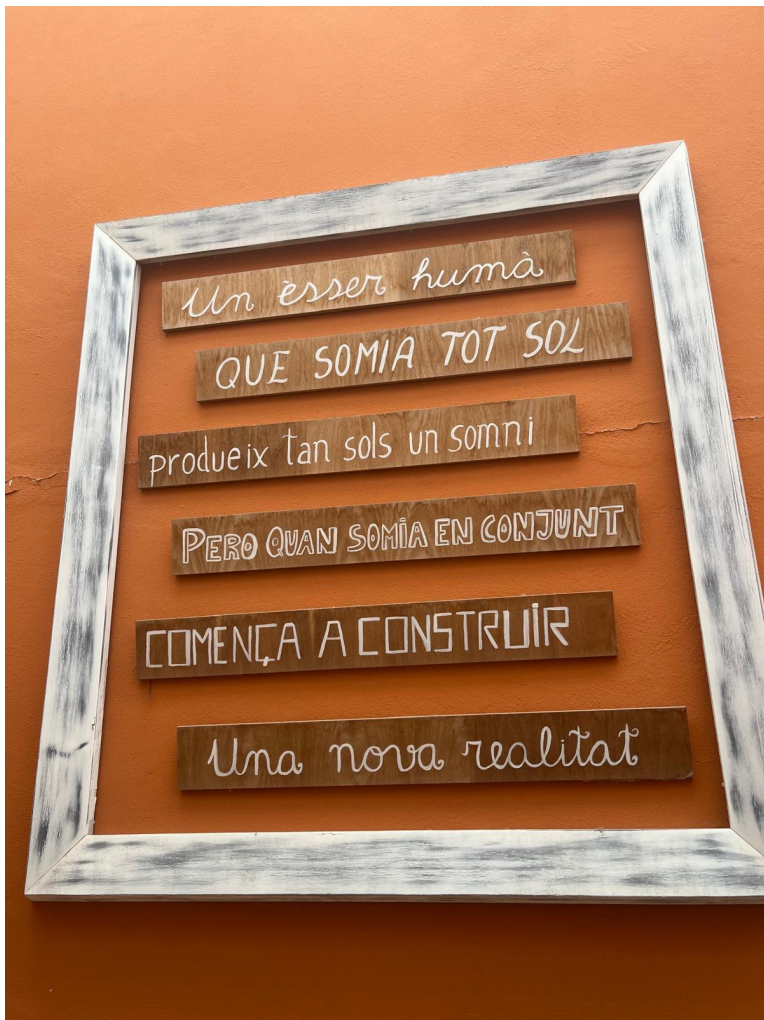 Un èsser humà
QUE SOMIA TOT SOL
produeix tan sols un somni
PERO QUAN SOMIA EN CONJUNT
COMENÇA A CONSTRUIR
Una nova realitat